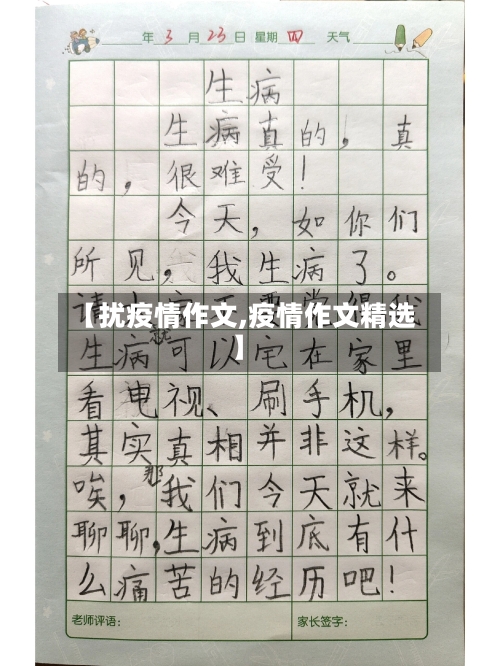 年 3 月 23 日 星期 四 天气
生病
生病真的，真
的，很难受！
今天，如你们
所见，我生病了。
请大家不要觉得我
【扰疫情作文,疫情作文精选
】
生病就可以宅在家里
看电视、刷手机，
其实真相并非这样。
唉，那我们今天就来
聊聊，生病到底有什
么痛苦的经历吧！
老师评语： 家长签字：